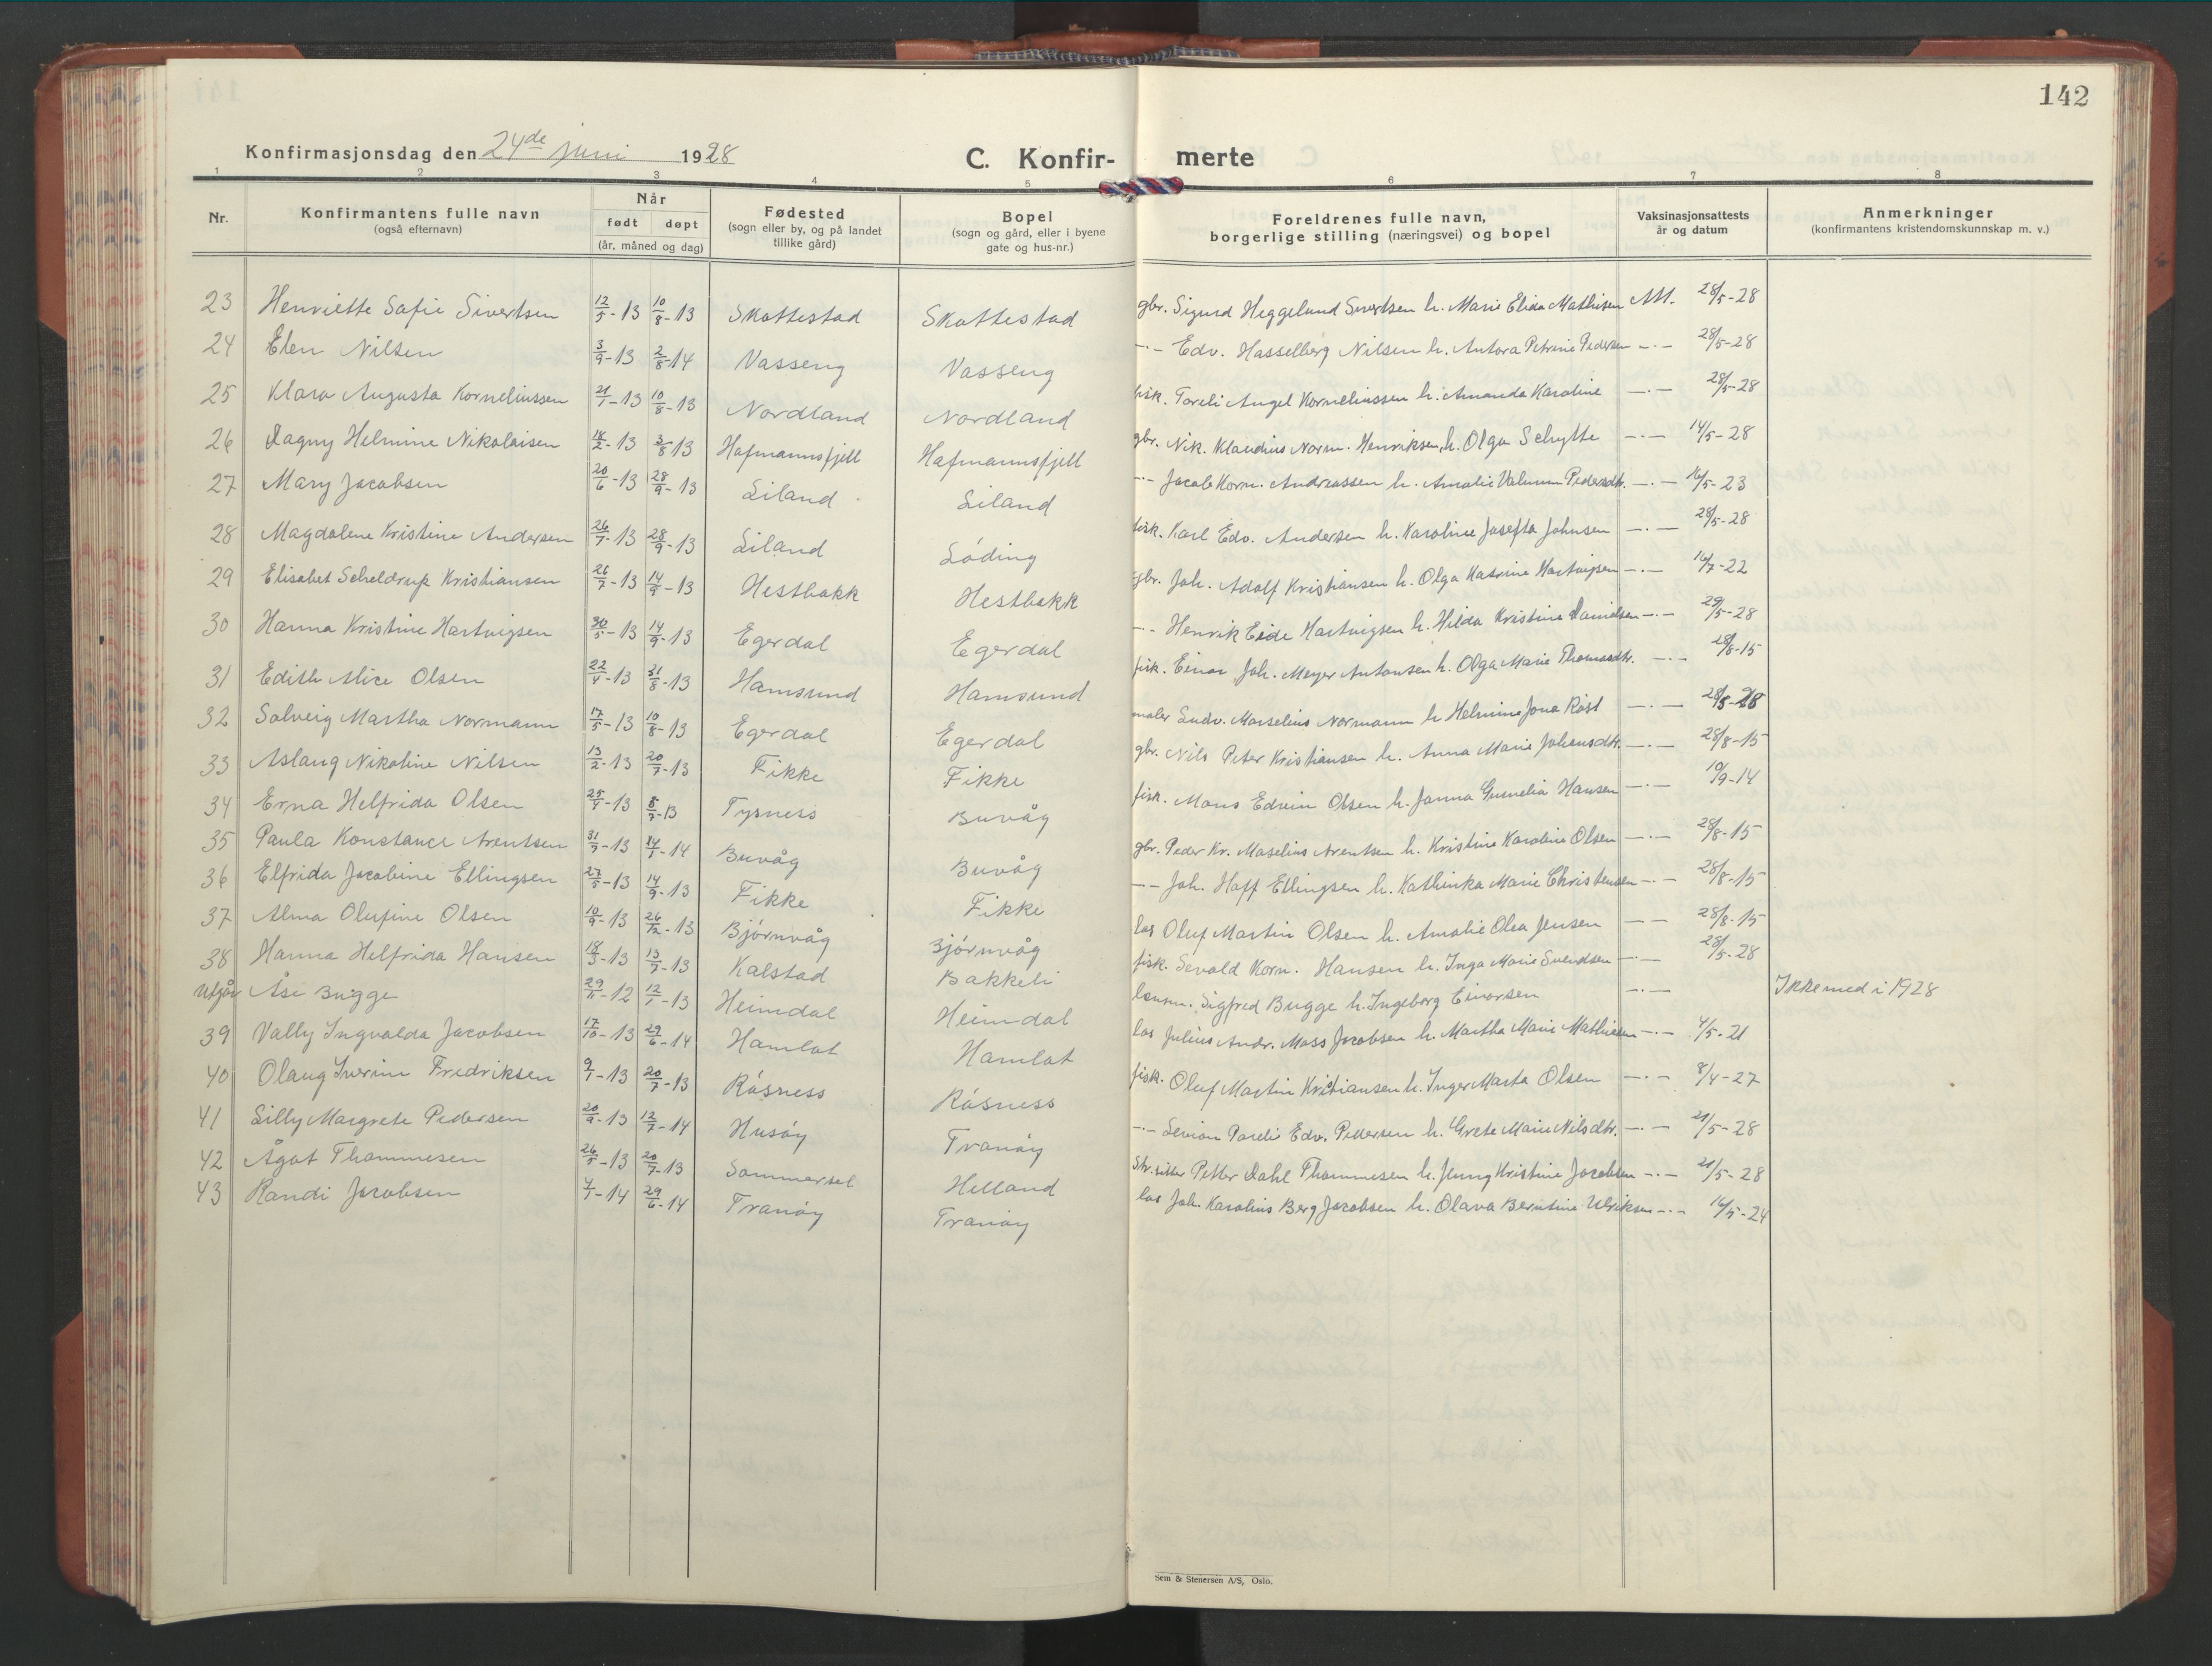 142
Konfirmasjonsdag den 24de juni 1928
C. Konfir- merte
1 2 3 4 5 6 7 8
Nr. Konfirmantens fulle navn (også efternavn) Når født døpt (år, måned og dag) Fødested (sogn eller by, og på landet tillike gård) Bopel (sogn og gård, eller i byene gate og hus-nr.) Foreldrenes fulle navn, borgerlige stilling (næringsvei) og bopel Vaksinasjonsattests år og datum Anmerkninger (konfirmantens kristendomskunnskap m. v.)
23 Henriette Sofie Sivertsen 12/5-13 10/8-13 Skottestad Skottestad gbr. Sigurd Heggelund Sivertsen h. Marie Elida Mathisen Att. 28/5-28
24 Elen Nilsen 3/9-13 2/8-14 Vasseng Vasseng -·- Edv. Hasselberg Nilsen h. Antora Petrine Pedersen -·- 28/5-28
25 Klara Augusta Korneliussen 21/1-13 10/8-13 Nordland Nordland fisk. Toreli Angel Korneliussen h. Amanda Karoline -·- 28/5-28
26 Dagny Helmine Nikolaisen 18/2-13 3/8-13 Hofmannsfjell Hofmannsfjell gbr. Nik. Klaudius Norm. Henriksen h. Olga Schytte -·- 14/5-28
27 Mary Jacobsen 20/6-13 28/9-13 Liland Liland -·- Jacob Korn. Andreassen h. Amalie Valnum Pedersdtr. -·- 16/5-23
28 Magdalene Kristine Andersen 26/7-13 28/9-13 Liland Løding fisk. Karl Edv. Andersen h. Karoline Josefta Johnsen -·- 28/5-28
29 Elisabet Scheldrup Kristiansen 26/7-13 14/9-13 Hestbakk Hestbakk gbr. Joh. Adolf Kristiansen h. Olga Katrine Hartvigsen -·- 16/7-22
30 Hanna Kristine Hartvigsen 30/5-13 14/9-13 Egerdal Egerdal -·- Henrik Eide Hartvigsen h. Hilda Kristine Danielsen -·- 29/5-28
31 Edith Alice Olsen 22/4-13 31/8-13 Hamsund Hamsund fisk. Einar Joh. Meyer Antonsen h. Olga Marie Thomasdtr. -·- 28/8-15
32 Solveig Martha Normann 17/5-13 10/8-13 Egerdal Egerdal maler Ludv. Marselius Normann h. Helmine Jona Røst -·- 28/5-28
33 Aslaug Nikoline Nilsen 13/2-13 20/7-13 Fikke Fikke gbr. Nils Peter Kristiansen h. Anna Marie Johansdtr. -·- 28/8-15
34 Erna Helfrida Olsen 25/4-13 8/7-13 Tysness Buvåg fisk. Mons Edvin Olsen h. Janna Gunelia Hansen -·- 10/9-14
35 Paula Konstance Arentsen 31/7-13 14/7-14 Buvåg Buvåg gbr. Peder Kr. Maselius Arentsen h. Kristine Karoline Olsen -·- 28/8-15
36 Elfrida Jacobine Ellingsen 27/5-13 14/9-13 Fikke Fikke -·- Joh. Hoff Ellingsen h. Kathinka Marie Christensen -·- 28/8-15
37 Alma Olufine Olsen 10/9-13 26/12-13 Bjørnvåg Bjørnvåg los Oluf Martin Olsen h. Amalie Olea Jensen -- 28/8-15
38 Hanna Helfrida Hansen 18/3-13 13/7-13 Kalstad Bakkeli fisk. Sevald Korn. Hansen h. Inga Marie Svendsen -·- 28/5-28
Utgår Åse Bugge 29/11-12 12/1-13 Heimdal Heimdal lensm. Sigfred Bugge h. Ingeborg Eivorsen -·- Ikke med i 1928
39 Vally Ingvalda Jacobsen 17/10-13 29/6-14 Hamlot Hamlot los Julius Andr. Moss Jacobsen h. Martha Marie Mathisen -·- 4/5-21
40 Olaug Iverine Fredriksen 9/1-13 20/7-13 Råsness Råsness fisk. Oluf Martin Kristiansen h. Inger Marta Olsen -·- 8/4-27
41 Lilly Margrete Pedersen 20/9-13 12/7-14 Husøy Tranøy -·- Levion Pareli Edv. Pettersen h. Grete Marie Nilsdtr. -·- 21/5-28
42 Ågot Thommesen 26/5-13 20/7-13 Sommersel Helland Str.sitter Petter Dahl Thommesen h. Jenny Kristine Jacobsen -·- 21/5-28
43 Randi Jacobsen 4/1-14 29/6-14 Tranøy Tranøy los Joh. Karolius Berg Jacobsen h. Olava Berntine Ulriksen -·- 16/5-24
Sem & Stenersen A/S, Oslo.